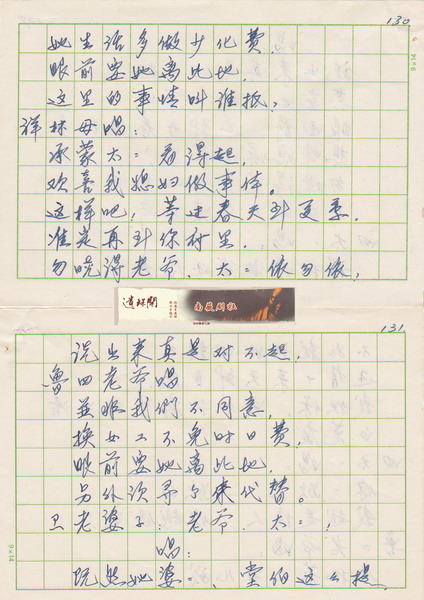 130
她生活多做少化费,
眼前要她离此地,
这里的事情叫谁抵,
祥林母唱:
承蒙太=看得起,
欢喜我媳妇做事体。
这样吧, 等过春天到夏季,
准定再到你村里。
勿晓得老爷、太=依勿依,
9×14
遗珠阁
南薇剧社
131
说出来真是对不起,
鲁四老爷唱
並非我們不同意,
换女工不免时日费,
眼前要她离此地,
另外须寻个来代替。
卫老婆子: 老爷、太=,
唱:
既然她婆=、堂伯这么提,
9×14